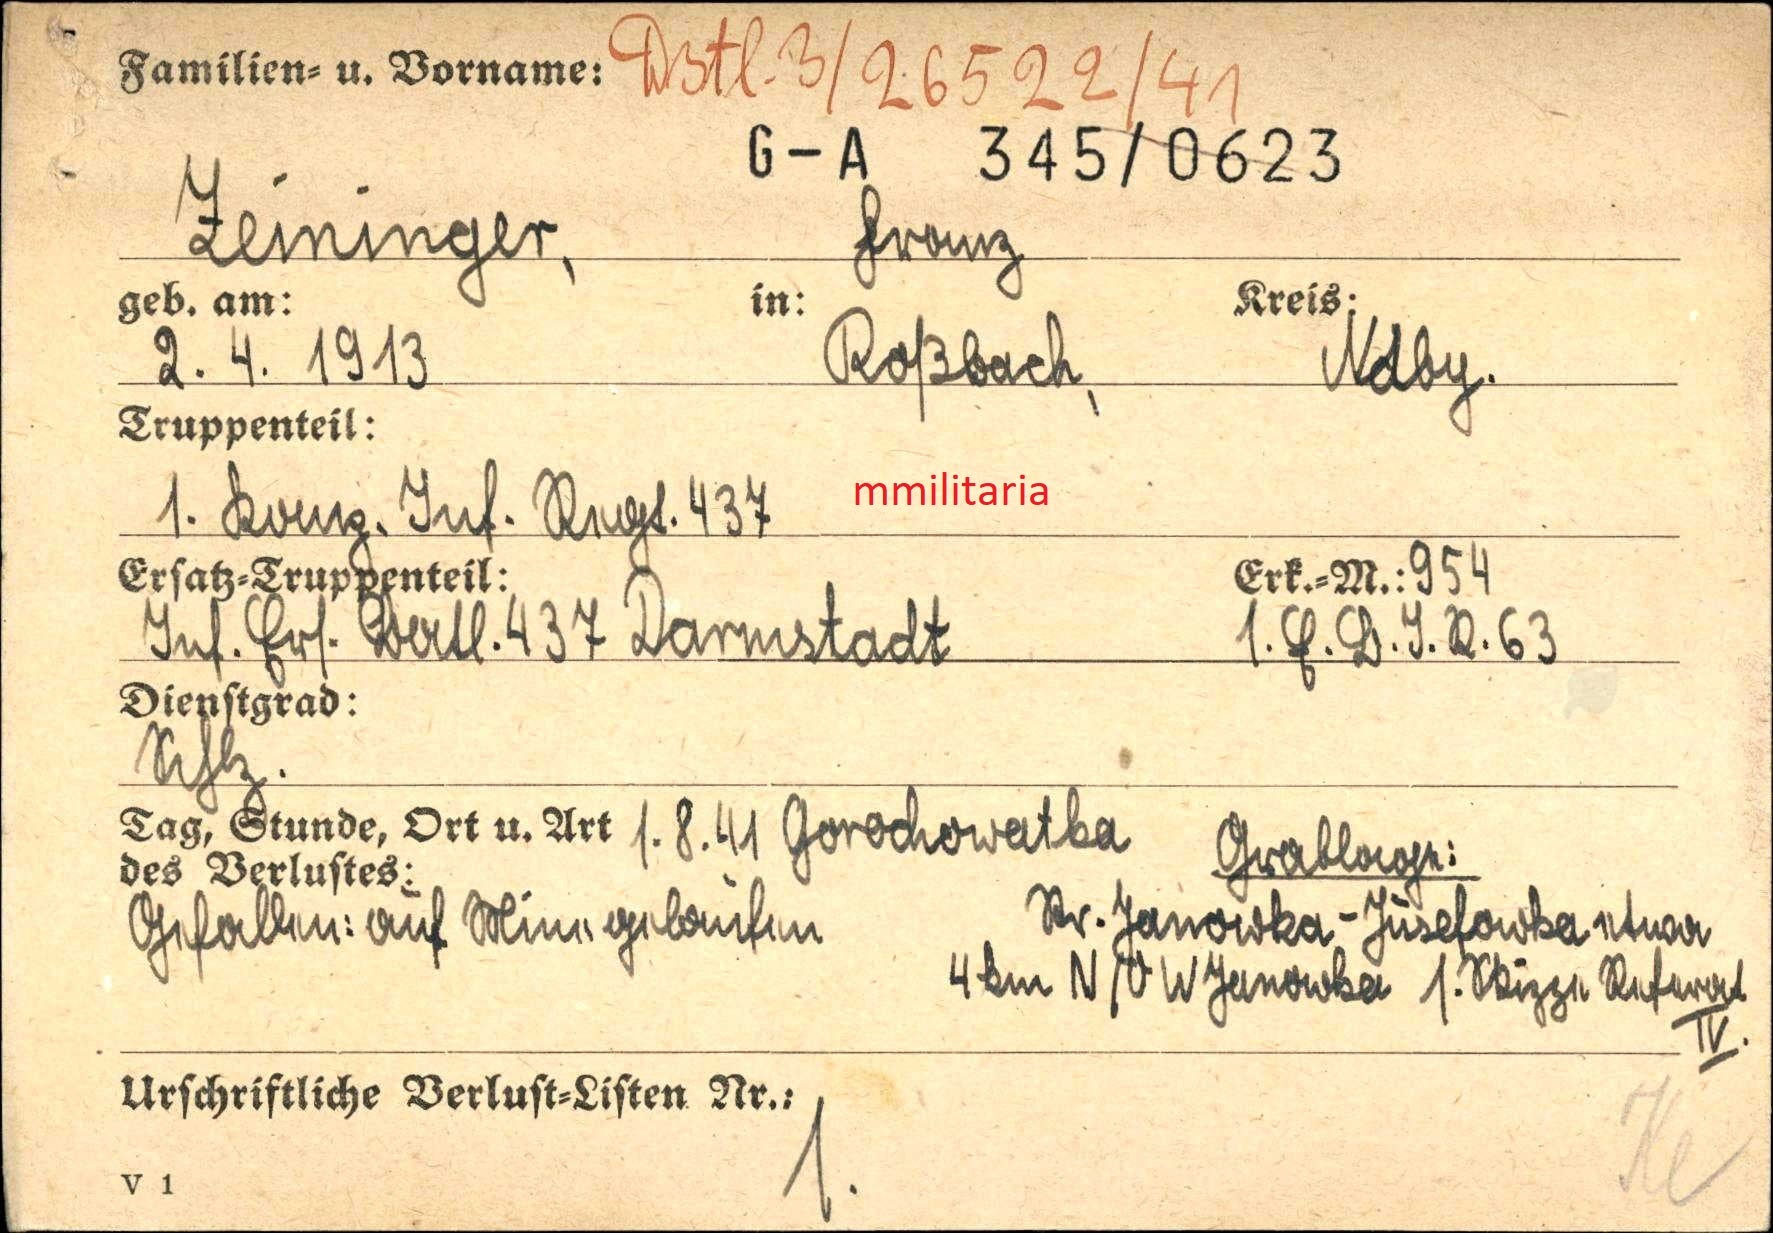 Familien- u. Vorname: Dstl. 3/26522/41
G-A 345/0623
Zeininger, Franz
geb. am: in: Kreis:
2. 4. 1913 Roßbach, Ndby.
Truppenteil:
1. Komp. Inf. Regt. 437
mmilitaria
Ersatz-Truppenteil: Erk.-M.: 954
Inf. Ers. Batl. 437 Darmstadt 1. E. B. I. R. 63
Dienstgrad:
Schtz.
Tag, Stunde, Ort u. Art 1.8.41 Gorochowatka Grablage:
des Verlustes:
Gefallen: auf Mine gelaufen Str. Janowka - Jusefowka etwa
4 km N/O W Janowka Skizze Referat
IV.
Urschriftliche Verlust-Listen Nr.:
1.
V 1